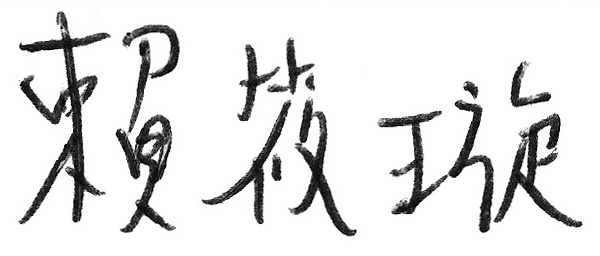 賴筱璇